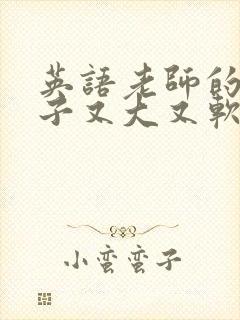 英語老師的
子又大又軟
小蠻蠻子